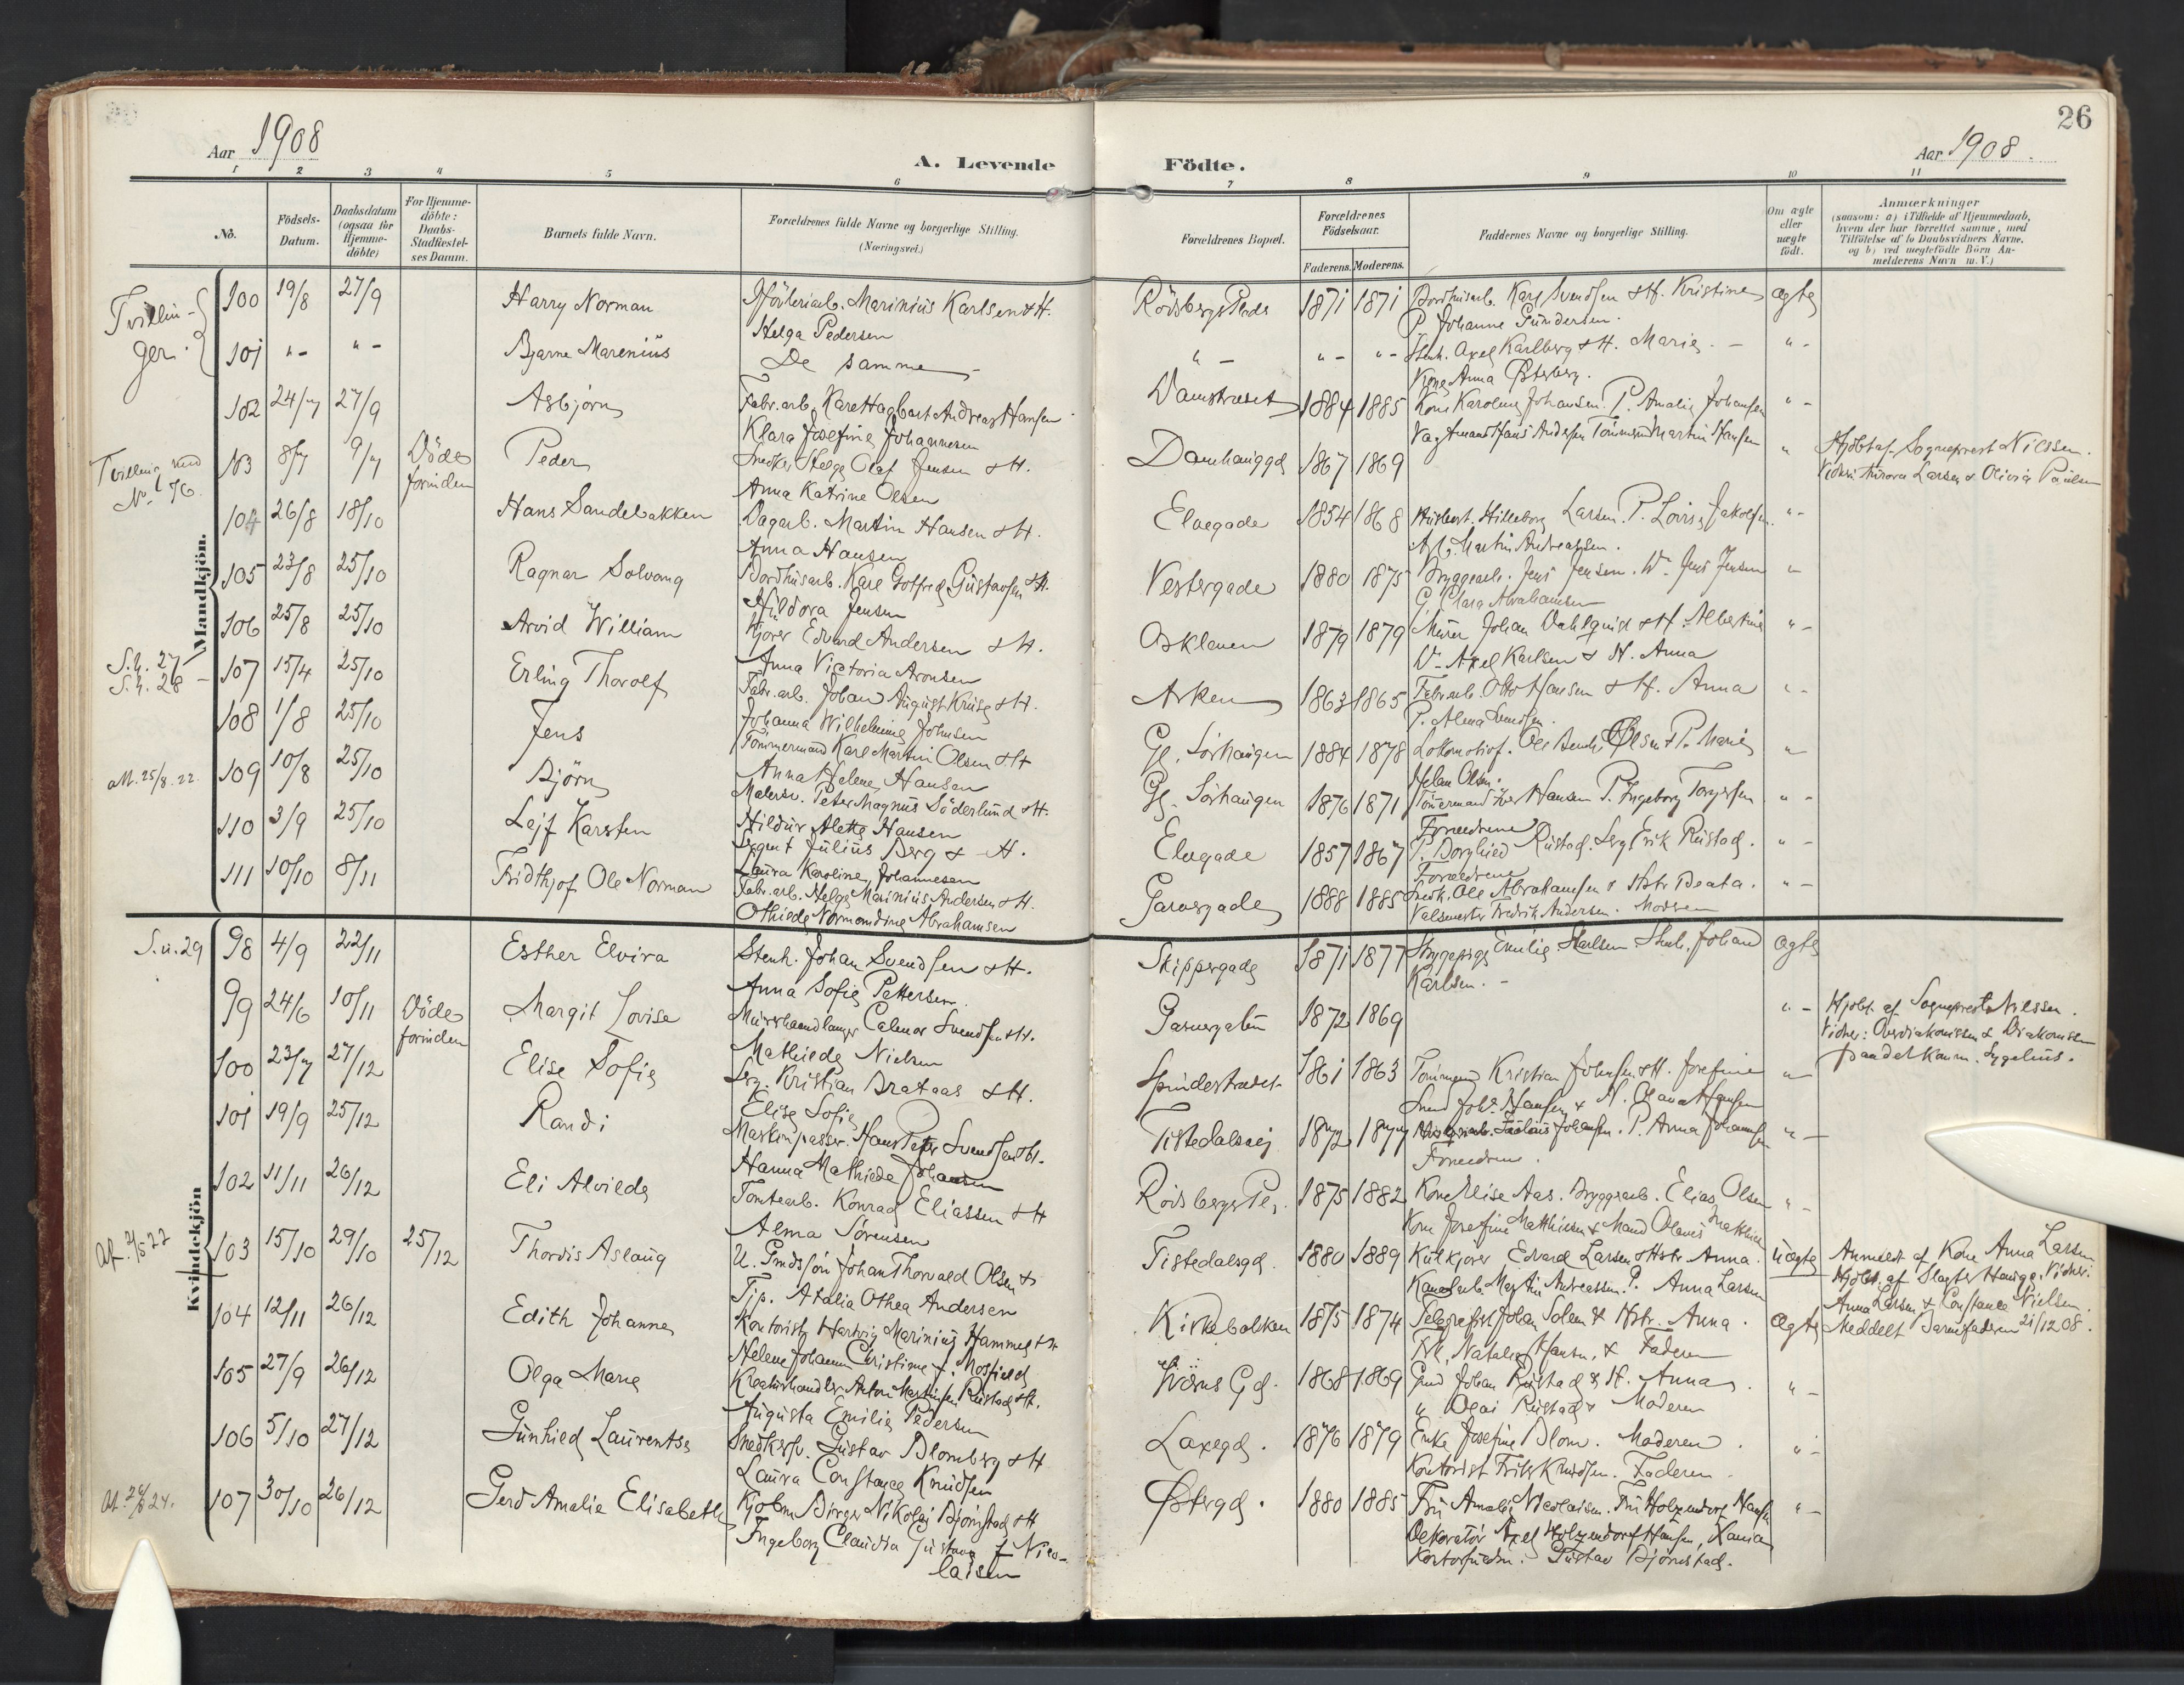 26
Aar 1908
A. Levende
Födte.
Aar 1908.
1 2 3 4 5 6 7 8 9 10 11
No.
Födsels-Datum.
Daabsdatum (ogsaa for Hjemme-döbte)
For Hjemme-döbte: Daabs-Stadfæstel-ses Datum.
Barnets fulde Navn.
Forældrenes fulde Navne og borgerlige Stilling. (Næringsvei.)
Forældrenes Bopæl.
Forældrenes Födselsaar.
Faderens. Moderens.
Faddernes Navne og borgerlige Stilling.
Om ægte eller uægte födt.
Anmærkninger
(saasom: a) i Tilfælde af Hjemmedaab,
hvem der har forrettet samme, med
Tilföielse af to Daabsvidners Navne,
og b) ved uægtefödte Börn An-
melderens Navn m. V.)
Mandkjön.
Tvillin-
ger.
100 19/8 27/9 Harry Norman Marinius Karlsen & H. Rödsbergs Plads 1871 1871 Bordhusarb. Karl Svendsen & H. Kristine ægte
Helga Pedersen P. Johanne Gundersen.
101 " - " - Bjarne Marenius De samme " - " - " - Stenh. Axel Karlberg & H. Marie. - " -
Kone Anna Østerberg.
102 24/7 27/9 Asbjørn Fabr.arb. Andreas Hansen 1884 1885 Kone Karoline Johansen. P. Amalie Johansen " -
Klara Josefine Johannesen
Tvilling med
No. 76.
103 8/7 9/7 Döde forinden Peder Snedker Helge Olaf Jensen & H. Damhauggd 1867 1869 " Hjdöbt af Sogneprest Nilssen.
Anna Katrine Olsen Aurora Larsen & Olivia Paulsen
104 26/8 18/10 Hans Sandebakken Dagarb. Martin Hansen & H. Elvegade 1854 1868 Larsen. P. Lovise Jakobsen. " -
Anna Hansen Martin Andreassen.
105 23/8 25/10 Ragnar Solvang Bordhusarb. Karl Gotfred Gustavsen & H. Vestergade 1880 1875 Bryggearb. Jens Jensen. Jens Jensen "
Hildora Jensen G. Clara Abrahamsen
106 25/8 25/10 Arvid William Kjører Edvard Andersen & H. Asklaven 1879 1879 Murer Johan Dahlquist & H. Albertine " -
Anna Victoria Aronsen Axel Karlsen & H. Anna
S.u. 27
S.u. 28 -
107 15/4 25/10 Erling Thorolf Fabr.arb. Johan August Kruse & H. Asken 1863 1865 Fabr.arb. Otto Hansen & H. Anna " -
Johanna Wilhelmine Johnsen P. Alma Svendsen.
108 1/8 25/10 Jens Tömmermand Karl Martin Olsen & H. Gl. Sörhaugen 1884 1878 Lokomotivf. Ole Olsen & P. Marie "
Anna Helene Hansen Helene Olsen.
att. 25/8. 22.
109 10/8 25/10 Björn Malersv. Peter Magnus Söderlund & H. Gl. Sörhaugen 1876 1871 Tömmermand Hansen P. Ingeborg Torgersen " -
Hildur Alette Hansen Forældrene
110 3/9 25/10 Lejf Karsten Sergent Julius Berg & H. Elvegade 1857 1867 P. Borghild Rustad. Serg. Erik Rustad. " -
Laura Karoline Johannesen Forældrene
111 10/10 8/11 Fridthjof Ole Norman Fabr.arb. Helge Marinius Andersen & H. Garvergade 1888 1885 Snedk. Ole Abrahamsen & Hstr. Beata. " -
Othilde Normandine Abrahamsen Valsemester Fredrik Andersen. Moderen
Kvindekjön
S.u. 29
98 4/9 22/11 Esther Elvira Stenh. Johan Svendsen & H. Skippergade 1871 1877 Strygepige Emilie Karlsen Stenh. Johan ægte
Anna Sofie Pettersen. Karlsen. -
99 24/6 10/11 Döde forinden Margit Lovise Murerhaandlanger Calmar Svendsen & H. Garvergaten 1872 1869 " - Hjdöbt af Sogneprest Nilssen.
Mathilde Nielsen Vidner: Overdiakonissen & Diakonissen
paa det kom. Sygehus.
100 23/7 27/12 Elise Sofie Serg. Kristian Brataas & H. Spindestrædet 1861 1863 Tömmermand Kristian Johansen & H. Josefine "
Elise Sofie Hansen & H. Olava Hansen
101 19/9 25/12 Randi Maskinpasser. Hans Peter Svendsen & H. Tistedalsvej 1872 1877 Julius Johansen. P. Anna Johansen " -
Hanna Mathilde Johansen Forældrene.
102 11/11 26/12 Eli Alvilde Tomtearb. Konrad Eliassen & H Rödsbergs Pl. 1875 1882 Kone Elise Aas. Bryggearb. Elias Olsen " -
Alma Sörensen Kone Josefine Matthisen & Mand Olaus
Af. 2/5 22
103 15/10 29/10 25/12 Thordis Aslaug U. Grdssön Johan Thorvald Olsen & Tistedalsgd. 1880 1889 Kulkjører Edvard Larsen & Hstr. Anna. uægte Anmeldt af Kone Anna Larsen
Pip. Atalia Othea Andersen Martin Andreassen. P. Anna Larsen Hjdöbt af Slagter Hauge. Vidner:
Anna Larsen & Constance Nielsen.
104 12/11 26/12 Edith Johanne Kontorist Hartvig Marinius Hammer & H. Kirkebakken 1875 1874 Telegrafist Johan Solem & Hstr. Anna. ægte Meddelt Barnefaderen 21/12 08.
Helene Johanne Christine f. Mosfield Frk. Natalie Hansen, & Faderen
105 27/9 26/12 Olga Marie Kreaturhandler Anton Martinsen Rustad & H. Gd. 1868 1869 Grd. Johan Rustad & H. Anna. " -
Augusta Emilie Pedersen " Olai Rustad & Moderen
106 5/10 27/12 Gunhild Laurentse Snedkersv. Gustav Blomberg & H Laxegd. 1876 1879 Enke Josefine Blom. Moderen. " -
Laura Constance Knudsen Kontorist Fritz Knudsen. Faderen
At. 24.
107 30/10 26/12 Gerd Amalie Elisabeth Kjöbm. Birger Nikolai Björnstad & H Østergd. 1880 1885 Fru Amalie Nicolaisen. Fru Holzendorf Hansen " -
Ingeborg Claudia Gustava f. Nico- Dekoratör Axel Holzendorf Hansen, Xania
laisen Gustav Björnstad.